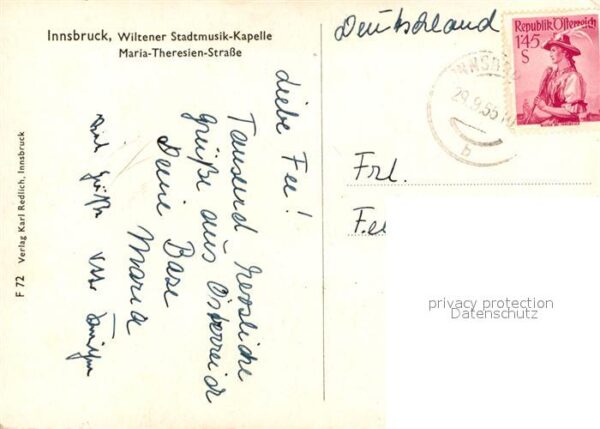 Innsbruck, Wiltener Stadtmusik-Kapelle
Maria-Theresien-Straße
F 72 Verlag Karl Redlich, Innsbruck
Liebe Fee!
Tausend herzliche
Grüße aus Österreich
Deine Base
Maria
Viele Grüße
Deutschland
Republik Österreich
1'45
S
INNSBR
29.9.55
b
Frl.
Fe
privacy protection
Datenschutz